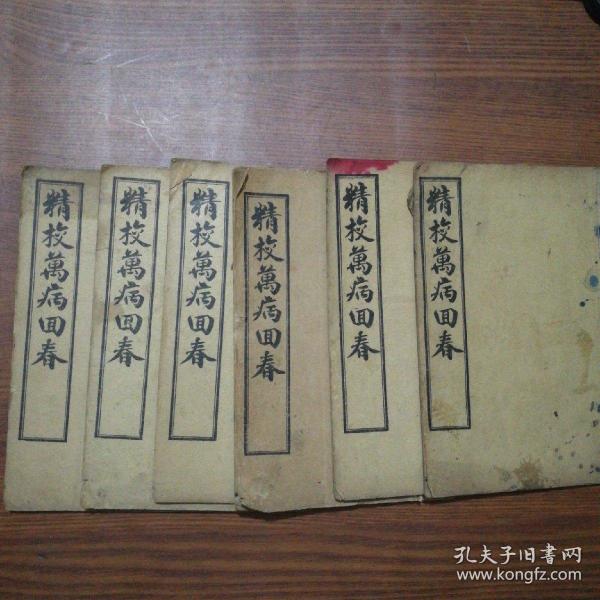 精校萬病回春
精校萬病回春
精校萬病回春
精校萬病回春
精校萬病回春
精校萬病回春
孔夫子旧書网
www.kongfz.com